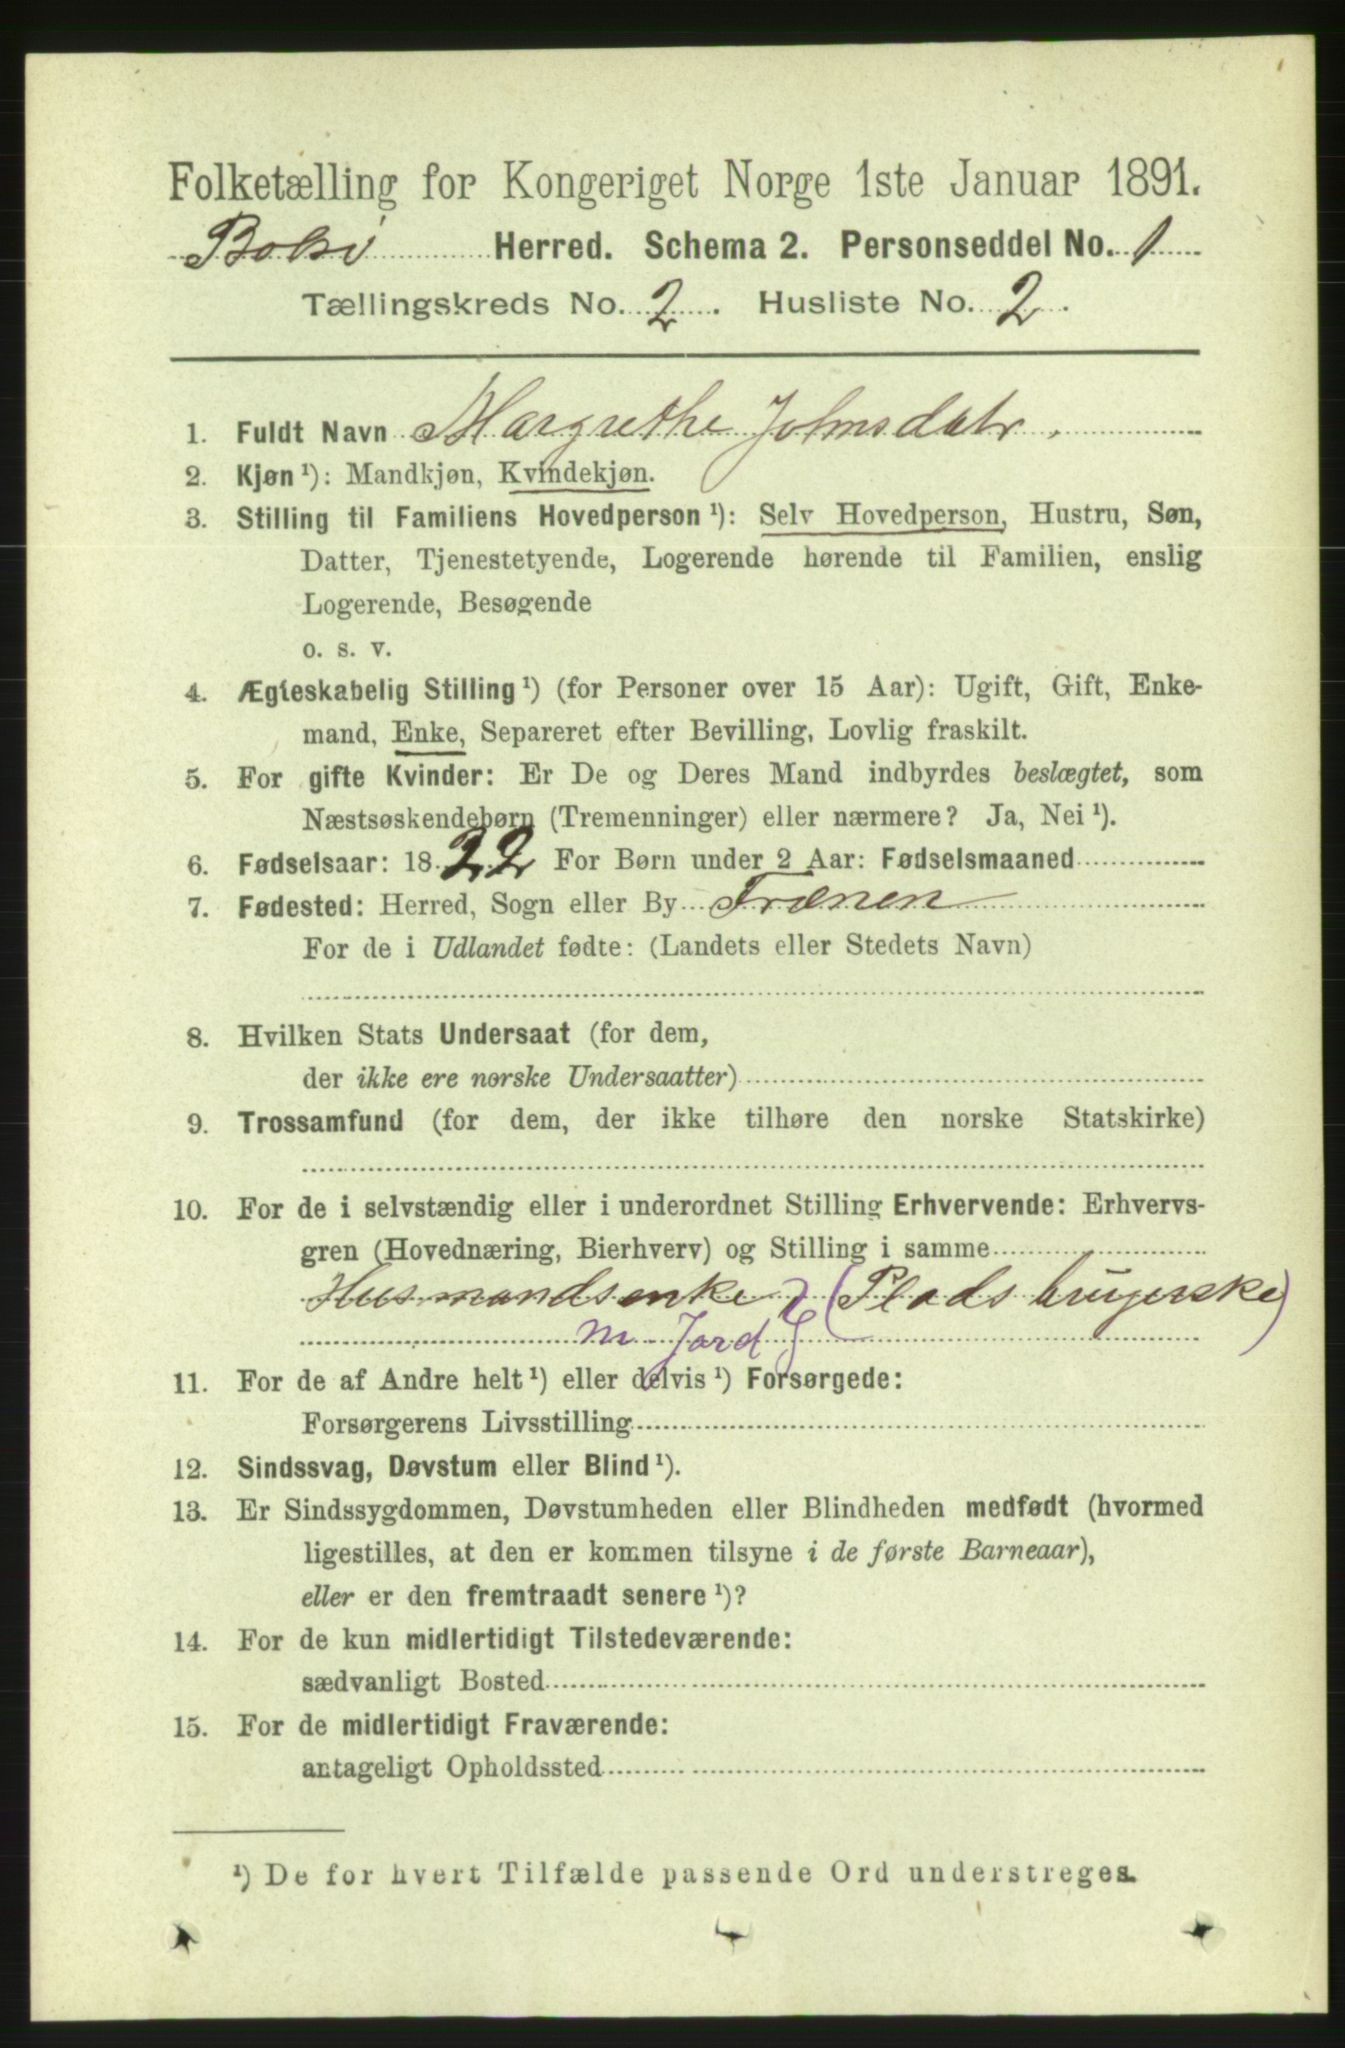 Folketælling for Kongeriget Norge 1ste Januar 1891.
Bolsø Herred. Schema 2. Personseddel No. 1
Tællingskreds No. 2. Husliste No. 2.
1. Fuldt Navn Margrethe Johnsdatr.
2. Kjøn ¹): Mandkjøn, Kvindekjøn.
3. Stilling til Familiens Hovedperson ¹): Selv Hovedperson, Hustru, Søn,
Datter, Tjenestetyende, Logerende hørende til Familien, enslig
Logerende, Besøgende
o. s. v.
4. Ægteskabelig Stilling ¹) (for Personer over 15 Aar): Ugift, Gift, Enke-
mand, Enke, Separeret efter Bevilling, Lovlig fraskilt.
5. For gifte Kvinder: Er De og Deres Mand indbyrdes beslægtet, som
Næstsøskendebørn (Tremenninger) eller nærmere? Ja, Nei ¹).
6. Fødselsaar: 1822 For Børn under 2 Aar: Fødselsmaaned
7. Fødested: Herred, Sogn eller By Frænen
For de i Udlandet fødte: (Landets eller Stedets Navn)
8. Hvilken Stats Undersaat (for dem,
der ikke ere norske Undersaatter)
9. Trossamfund (for dem, der ikke tilhøre den norske Statskirke)
10. For de i selvstændig eller i underordnet Stilling Erhvervende: Erhvervs-
gren (Hovednæring, Bierhverv) og Stilling i samme
Husmandsenke (Pladsbrugerske)
m Jord
11. For de af Andre helt ¹) eller delvis ¹) Forsørgede:
Forsørgerens Livsstilling
12. Sindssvag, Døvstum eller Blind ¹).
13. Er Sindssygdommen, Døvstumheden eller Blindheden medfødt (hvormed
ligestilles, at den er kommen tilsyne i de første Barneaar),
eller er den fremtraadt senere ¹)?
14. For de kun midlertidigt Tilstedeværende:
sædvanligt Bosted
15. For de midlertidigt Fraværende:
antageligt Opholdssted
¹) De for hvert Tilfælde passende Ord understreges.